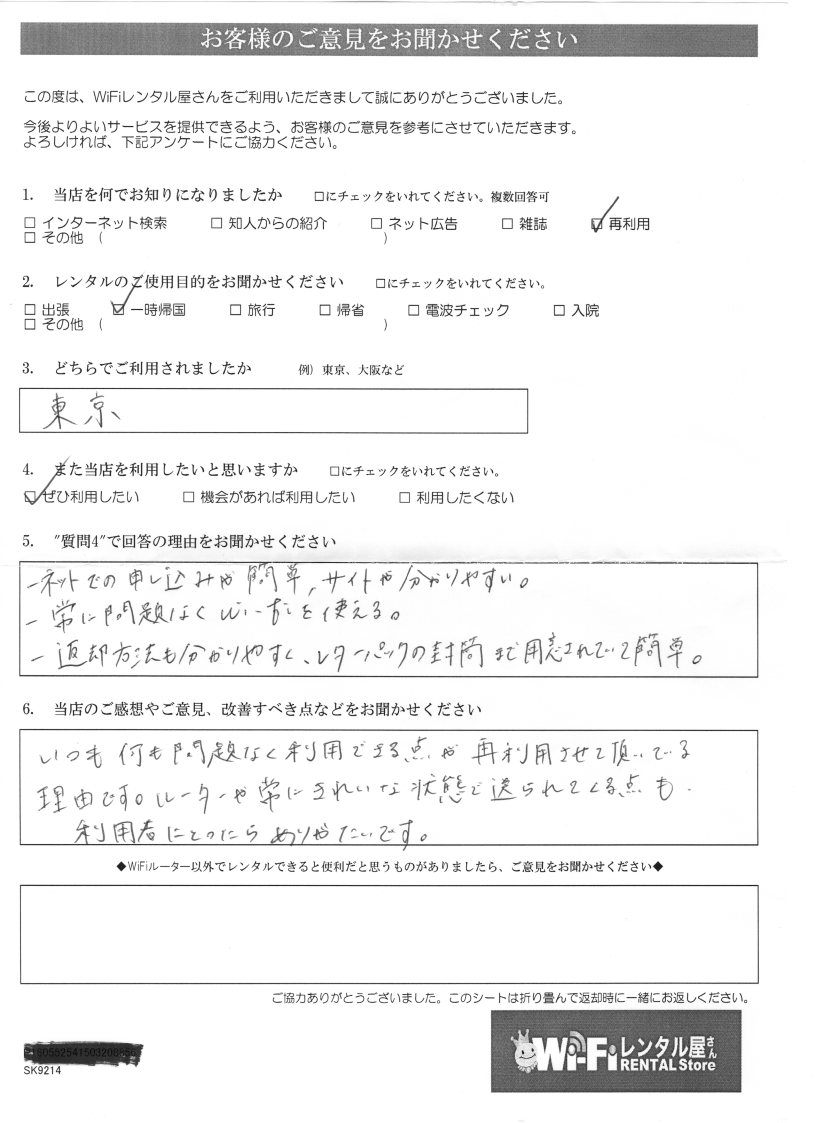 お客様のご意見をお聞かせください
この度は、WiFiレンタル屋さんをご利用いただきまして誠にありがとうございました。
今後よりよいサービスを提供できるよう、お客様のご意見を参考にさせていただきます。
よろしければ、下記アンケートにご協力ください。
1. 当店を何でお知りになりましたか □にチェックをいれてください。複数回答可
□ インターネット検索 □ 知人からの紹介 □ ネット広告 □ 雑誌 ☑ 再利用
□ その他 ( )
2. レンタルのご使用目的をお聞かせください □にチェックをいれてください。
□ 出張 ☑ 一時帰国 □ 旅行 □ 帰省 □ 電波チェック □ 入院
□ その他 ( )
3. どちらでご利用されましたか 例）東京、大阪など
東京
4. また当店を利用したいと思いますか □にチェックをいれてください。
☑ ぜひ利用したい □ 機会があれば利用したい □ 利用したくない
5. "質問4"で回答の理由をお聞かせください
- ネットでの申し込みが簡単, サイトが分かりやすい。
- 常に問題なくWi-fiを使える。
- 返却方法も分かりやすく、レターパックの封筒まで用意されていて簡単。
6. 当店のご感想やご意見、改善すべき点などをお聞かせください
いつも何も問題なく利用できる点が再利用させて頂いてる
理由です。ルーターが常にきれいな状態で送られてくる点も
利用者にとったらありがたいです。
◆WiFiルーター以外でレンタルできると便利だと思うものがありましたら、ご意見をお聞かせください◆
ご協力ありがとうございました。このシートは折り畳んで返却時に一緒にお返しください。
SK9214
Wi-Fiレンタル屋さん
RENTAL Store